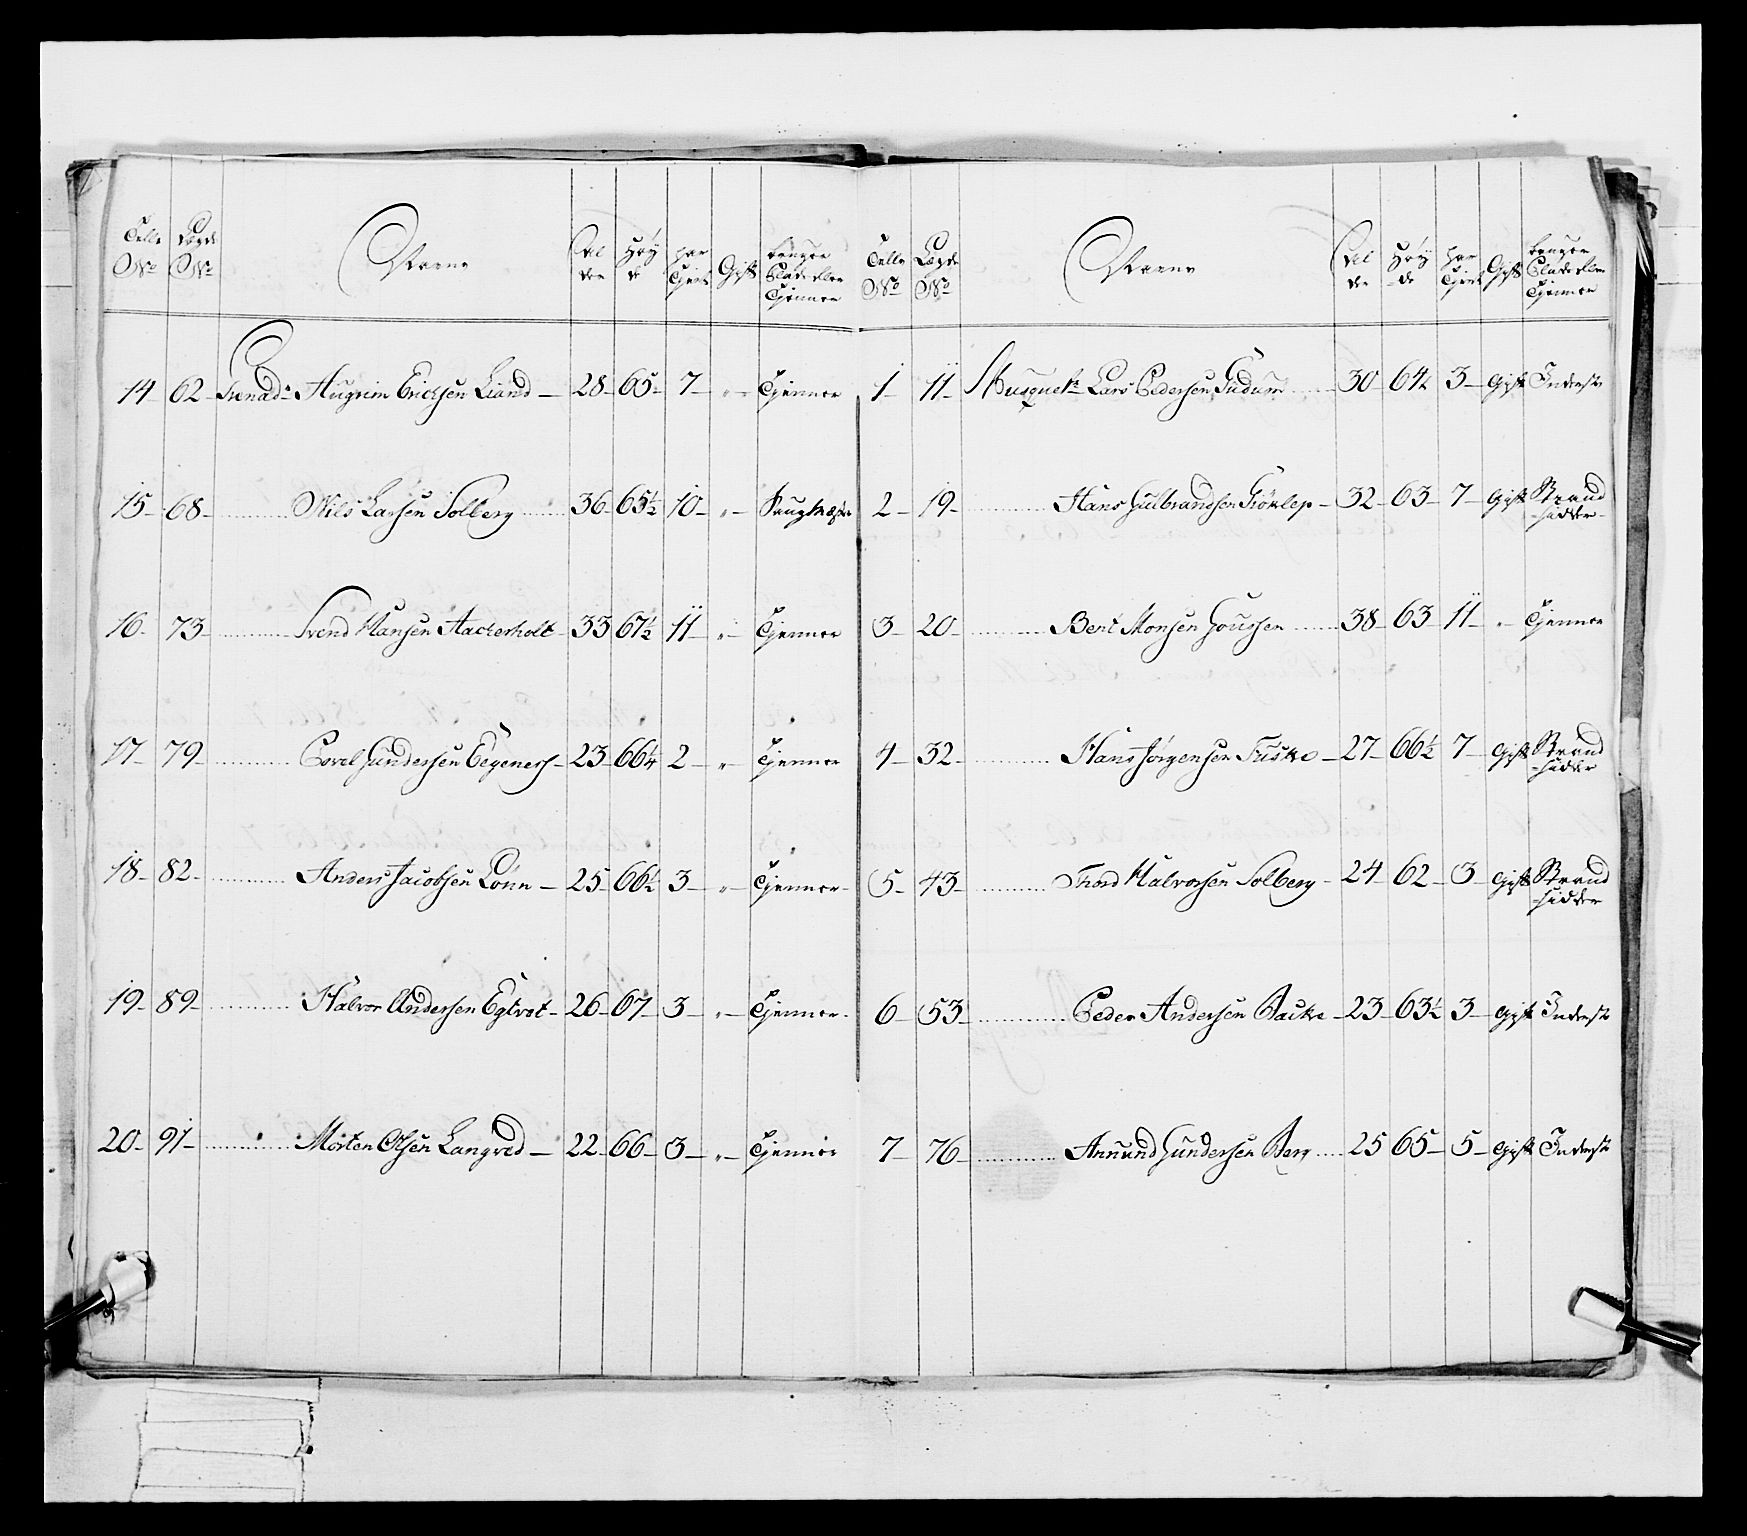 Telle No Lægde No Navne Alder Høyde har Tjent Gift
14 62 Grenad: Augrim Erichsen Liand 28 65 7 " Tjenner
15 68 Niels Larsen Solberg 36 65½ 10 "
16 73 Svend Hansen Aackerholt 33 67½ 11 " Tjenner
17 79 Povel Gundersen 23 66¼ 2 " Tjenner
18 82 Anders Jacobsen Lønn 25 66½ 3 " Tjenner
19 89 Halvor Andersen 26 67 3 " Tjenner
20 91 Morten Olsen Langved 22 66 3 " Tjenner
Telle No Lægde No Navne Alder Høyde har Tjent Gift
1 11 Musquet: Lars Pedersen Gudum 30 64½ 3 Gift Inderste
2 19 Hans Gulbrandsen 32 63 7 Gift Strand
sidder
3 20 Bent Monsen 38 63 11 " Tjenner
4 32 Hans Jørgensen Fuske 27 66½ 7 Gift Strand
sidder
5 43 Halvorsen Solberg 24 62 3 Gift Strand
sidder
6 53 Peder Andersen Backe 23 63½ 3 Gift Inderste
7 76 Annund Gundersen Berg 25 65 5 Gift Inderste